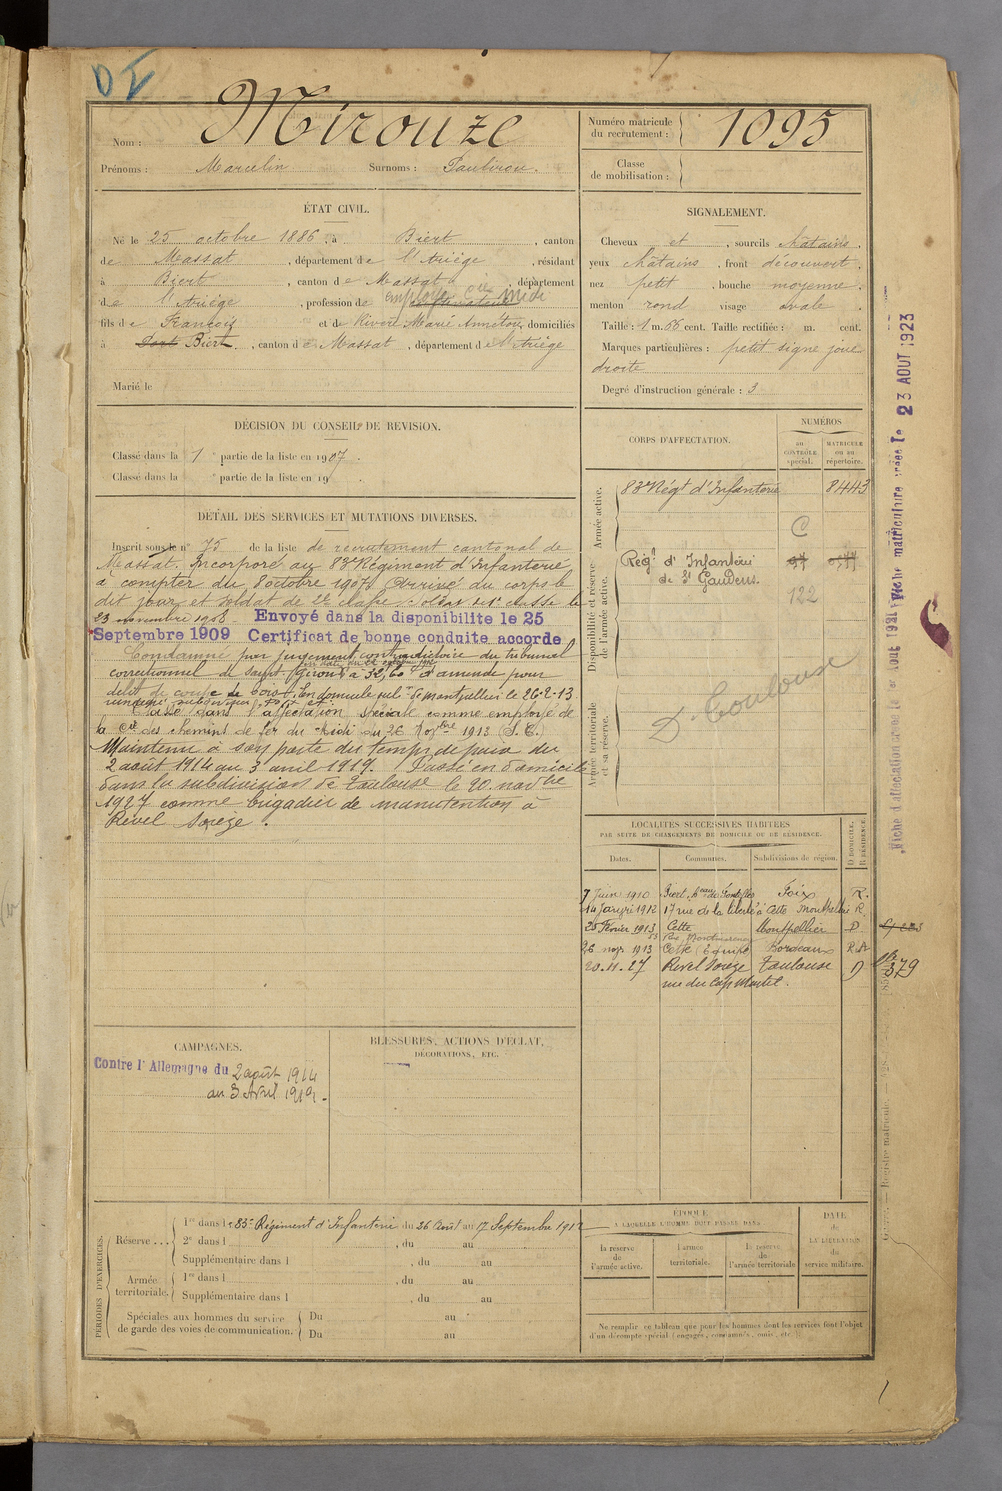 DI
Nom : Mirouze
Prénoms : Marcelin Surnoms : Paubirou.
Numéro matricule du recrutement : 1095
Classe de mobilisation :
ÉTAT CIVIL.
Né le 25 octobre 1886, à Biert, canton
de Massat, département de l'Ariège, résidant
à Biert, canton de Massat, département
de l'Ariège, profession de employé Midi
fils de François et de Rivère Marie Annétou, domiciliés
à Port Biert, canton de Massat, département de l'Ariège
Marié le
SIGNALEMENT.
Cheveux et, sourcils châtains,
yeux châtains, front découvert,
nez petit, bouche moyenne,
menton rond visage ovale.
Taille : 1 m. 66 cent. Taille rectifiée : m. cent.
Marques particulières : petit signe joue
droite
Degré d'instruction générale : 3
DÉCISION DU CONSEIL DE REVISION.
Classé dans la 1 e partie de la liste en 1907.
Classé dans la e partie de la liste en 19
DÉTAIL DES SERVICES ET MUTATIONS DIVERSES.
Inscrit sous le n° 75 de la liste de recrutement cantonal de
Massat. Incorporé au 83e Régiment d'Infanterie
à compter du 8 octobre 1907. Arrivé au corps le
dit jour et soldat de 2e classe. Soldat de 1e classe le
23 novembre 1908. Envoyé dans la disponibilite le 25
Septembre 1909 Certificat de bonne conduite accorde
Condamné par jugement contradictoire du tribunal
correctionnel de Saint-Girons à d'amende pour
delit de coupe de bois. En domicile sub. de Montpellier le 26-2-13
Classé dans l'affectation spéciale comme employé de
la Cie des chemins de fer du Midi du 26 Novbre 1913 (S.C.)
Maintenu à son poste du temps de paix du
2 août 1914 au 3 avril 1919. Passé en domicile
dans la subdivision de Toulouse le 20 novbre
1927 comme brigadier de manutention à
Revel Sorèze.
CORPS D'AFFECTATION.
NUMÉROS
AU CONTRÔLE spécial.
MATRICULE ou au répertoire.
Armée active.
83e Régt d'Infanterie 8443
C
Disponibilité et réserve de l'armée active.
Régt d'Infanterie
de St Gaudens.
122
Armée territoriale et sa réserve.
D. Toulouse
LOCALITÉS SUCCESSIVES HABITÉES
PAR SUITE DE CHANGEMENTS DE DOMICILE OU DE RÉSIDENCE.
Dates. Communes. Subdivisions de région. D DOMICILE, R RÉSIDENCE.
7 Juin 1910 Biert, Foix R.
14 Janvier 1912 17 rue de la liberté à Cette Montpellier R
25 Février 1913 Cette Montpellier D
26 nov 1913 Cette Bordeaux R
20.11.27 Revel Sorèze Toulouse D
rue du Cap Martel.
379
CAMPAGNES.
Contre l'Allemagne du 2 août 1914
au 3 Avril 1919.
BLESSURES, ACTIONS D'ÉCLAT,
DÉCORATIONS, ETC.
PÉRIODES D'EXERCICES.
Réserve ...
1re dans le 83e Régiment d'Infanterie du 26 Août au 17 Septembre 1912
2e dans l , du au
Supplémentaire dans l , du au
Armée territoriale.
1re dans l , du au
Supplémentaire dans l , du au
Spéciales aux hommes du service
de garde des voies de communication.
Du au
Du au
ÉPOQUE
À LAQUELLE L'HOMME DOIT PASSER DANS
la réserve de l'armée active.
l'armée territoriale.
la réserve de l'armée territoriale
DATE de LA LIBÉRATION du service militaire.
Ne remplir ce tableau que pour les hommes dont les services font l'objet
d'un décompte spécial (engagés, condamnés, omis, etc.)
Fiche matriculaire créée le 23 AOUT 1923